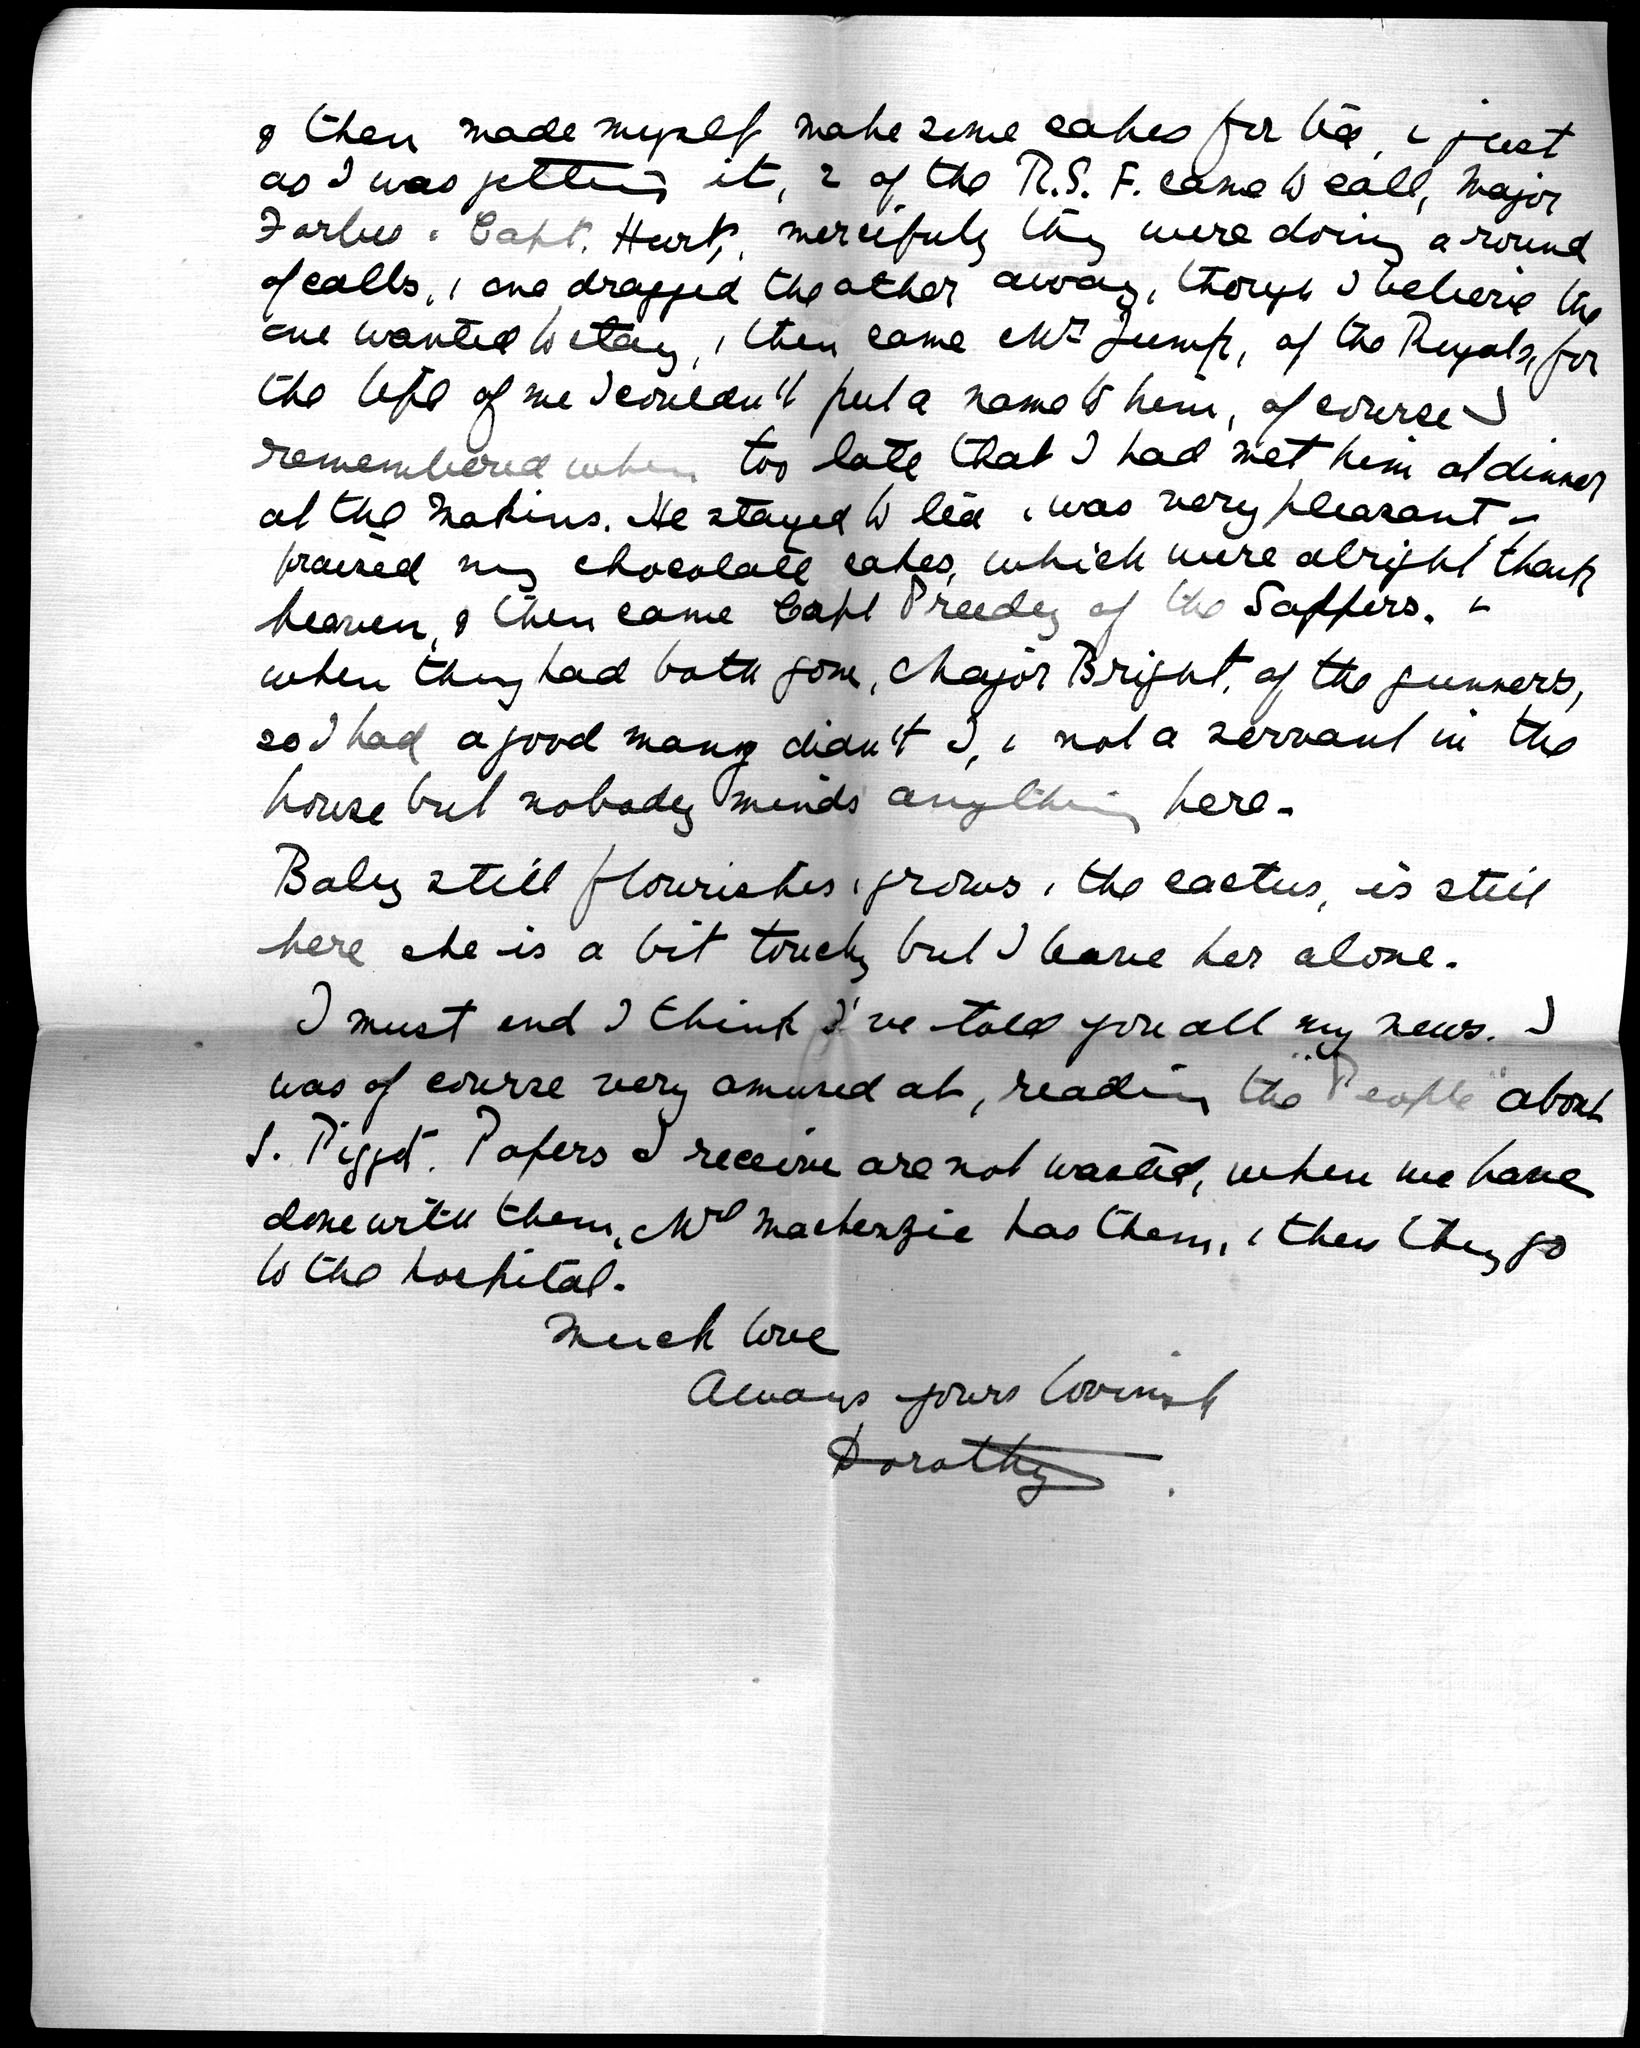 & then made myself make some cakes for tea, & just
as I was getting it, 2 of the R.S.F. came to call, Major
Forbes & Capt. Hurt, mercifuly they were doing a round
of calls, & one dragged the other away, though I believe the
one wanted to stay, & then came Mr Jump, of the Royals, for
the life of me I couldn't put a name to him, of course I
remembered when too late that I had met him at dinner
at the Makins. He stayed to tea & was very pleasant &
praised my chocolate cakes, which were alright thank
heaven, & then came Capt Preedy of the Sappers. &
when they had both gone, Major Bright, of the gunners,
so I had a good many didn't I, & not a servant in the
house but nobody minds anything here.
Baby still flourishes & grows, & the cactus, is still
here she is a bit touchy but I leave her alone.
I must end I think I've told you all my news. I
was of course very amused at, reading the "People" about
S. Piggot. Papers I receive are not wasted, when we have
done with them, Mrs Mackenzie has them, & then they go
to the hospital.
Much love
Always yours lovingly
Dorothy.